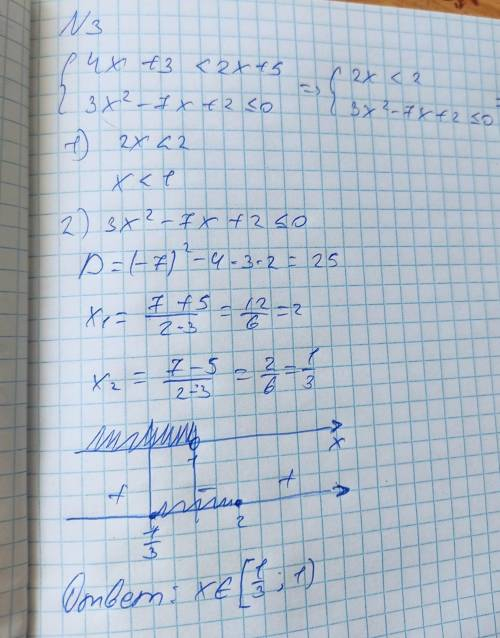 N3
{4x + 3 < 2x + 5 => {2x < 2
3x² - 7x + 2 ≤ 0 3x² - 7x + 2 ≤ 0
1) 2x < 2
x < 1
2) 3x² - 7x + 2 ≤ 0
D = (-7)² - 4·3·2 = 25
x₁ = (7+5)/(2·3) = 12/6 = 2
x₂ = (7-5)/(2·3) = 2/6 = 1/3
1 x
+ - +
1/3 2
Ответ: x ∈ [1/3; 1)